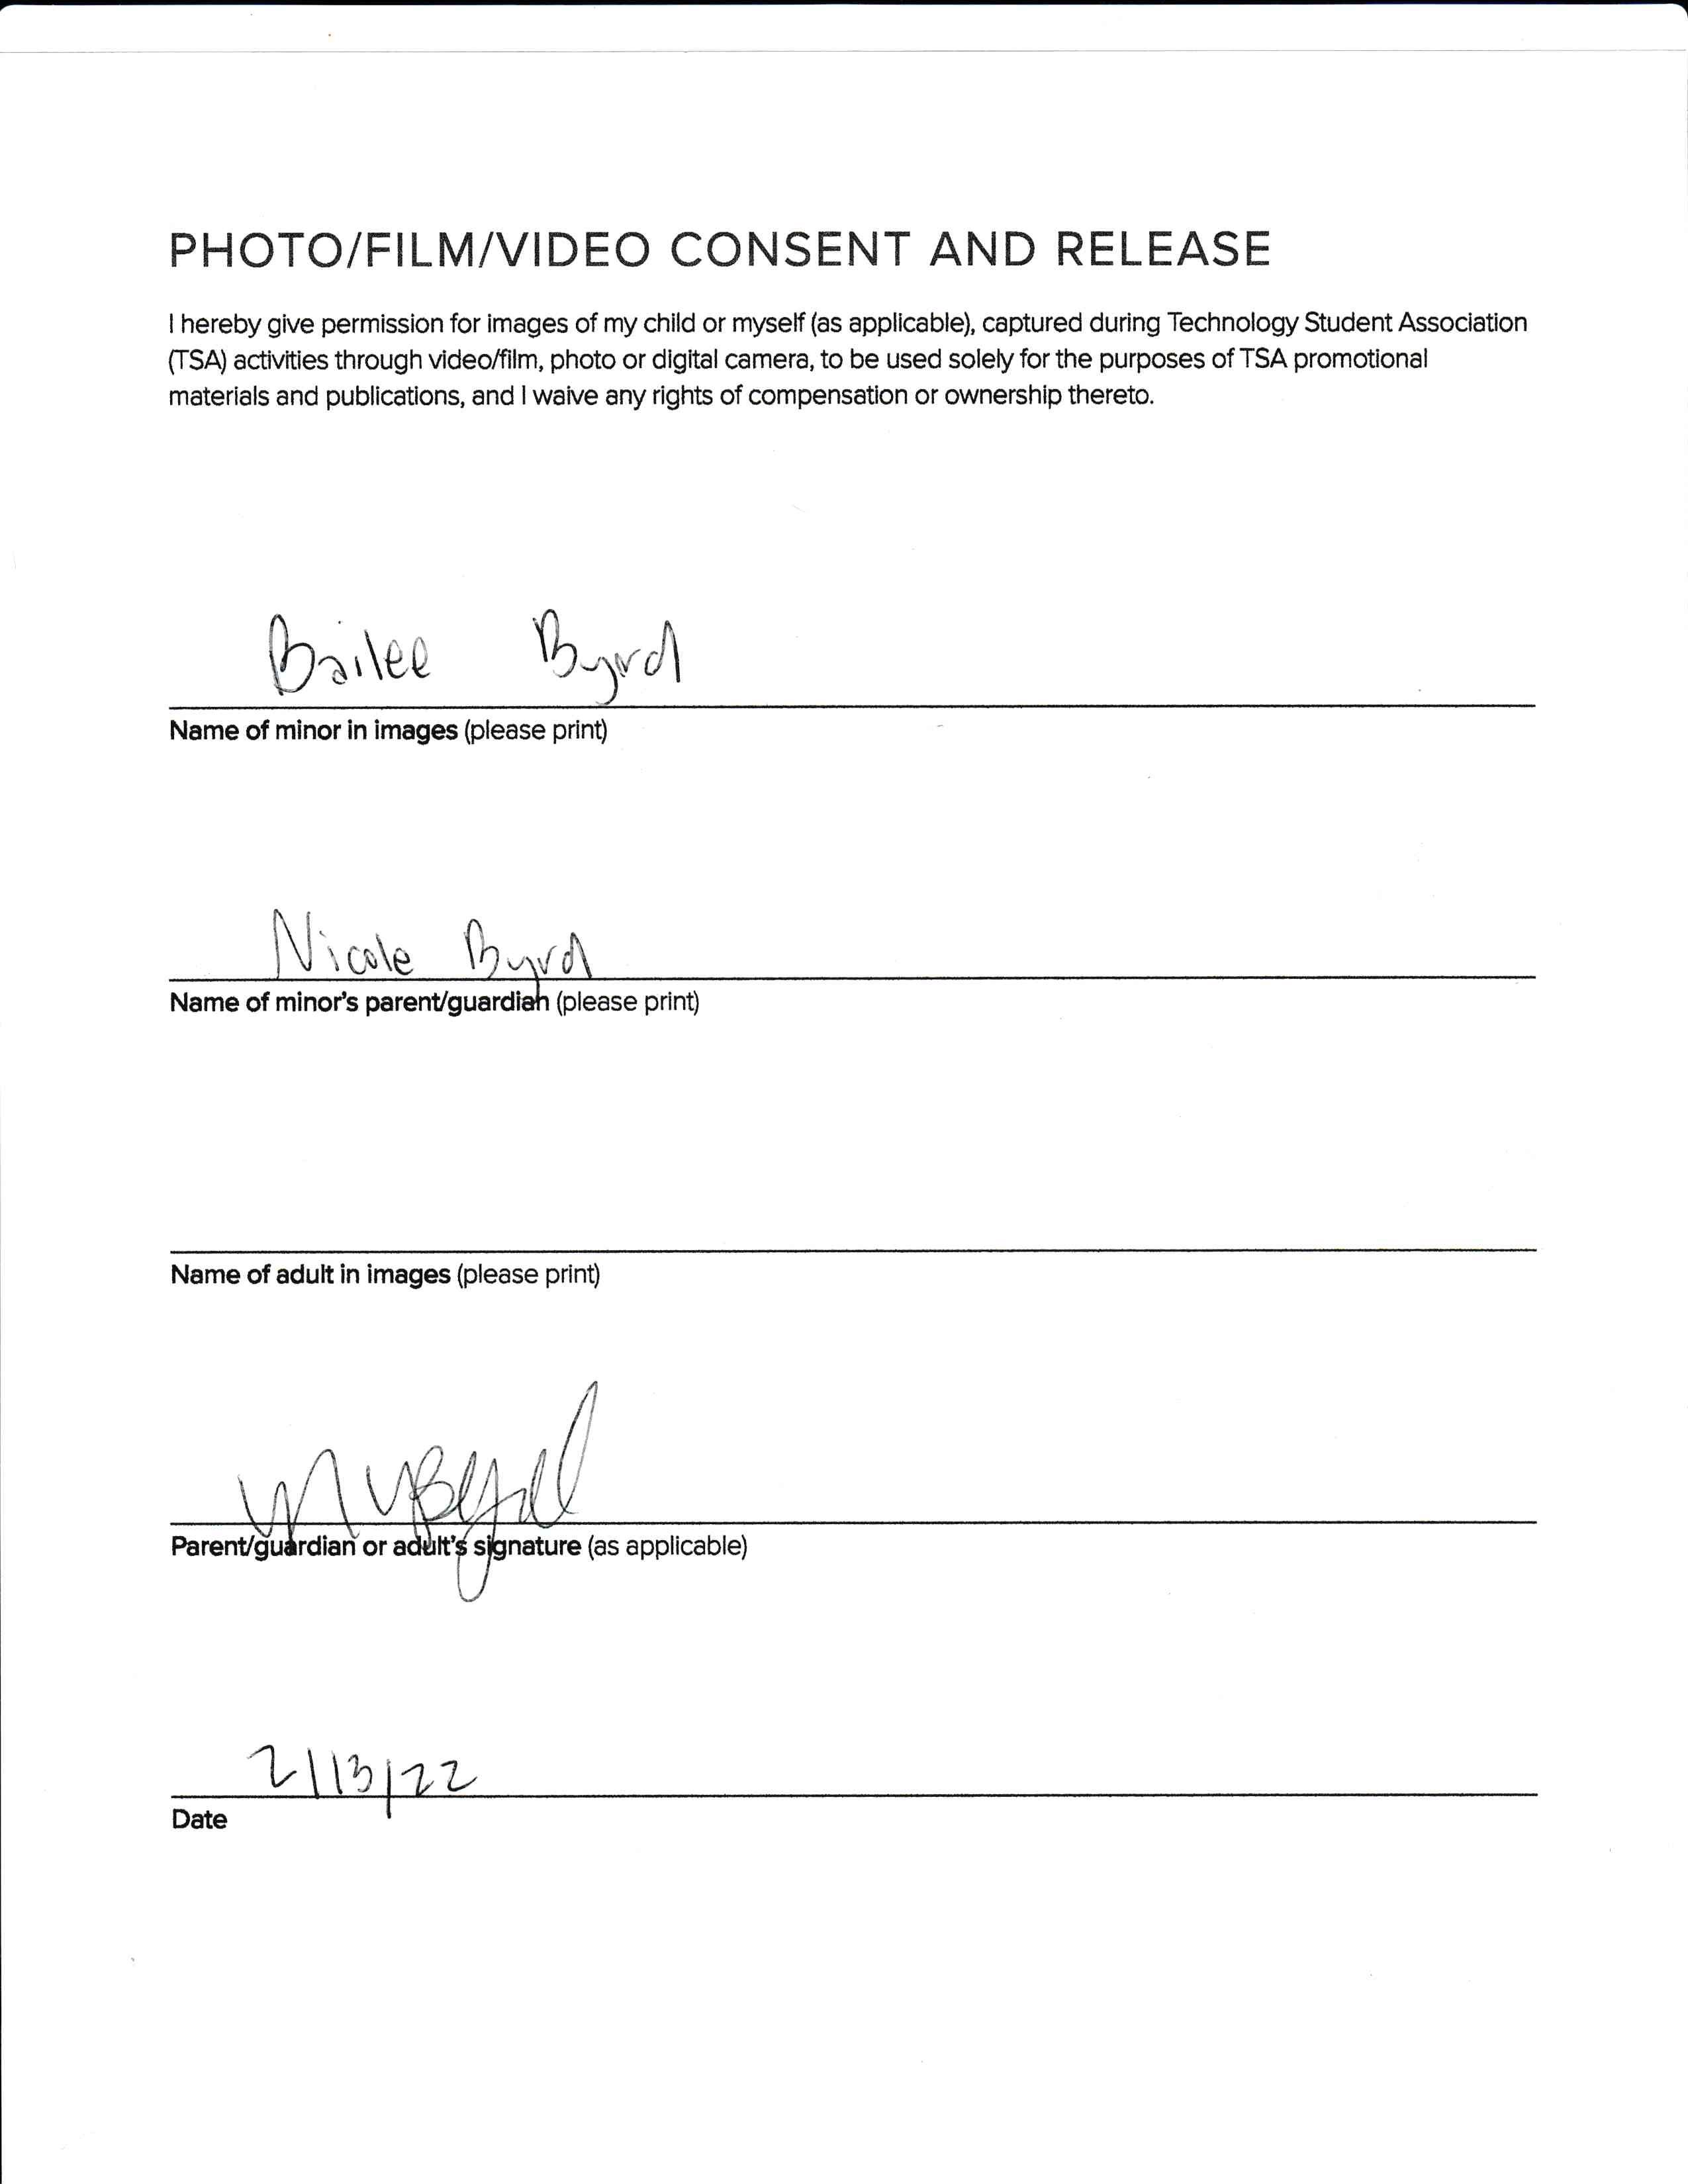 PHOTO/FILM/VIDEO CONSENT AND RELEASE
I hereby give permission for images of my child or myself (as applicable), captured during Technology Student Association
(TSA) activities through video/film, photo or digital camera, to be used solely for the purposes of TSA promotional
materials and publications, and I waive any rights of compensation or ownership thereto.
Bailee Byrd
Name of minor in images (please print)
Nicole Byrd
Name of minor's parent/guardian (please print)
Name of adult in images (please print)
Parent/guardian or adult's signature (as applicable)
2/13/22
Date